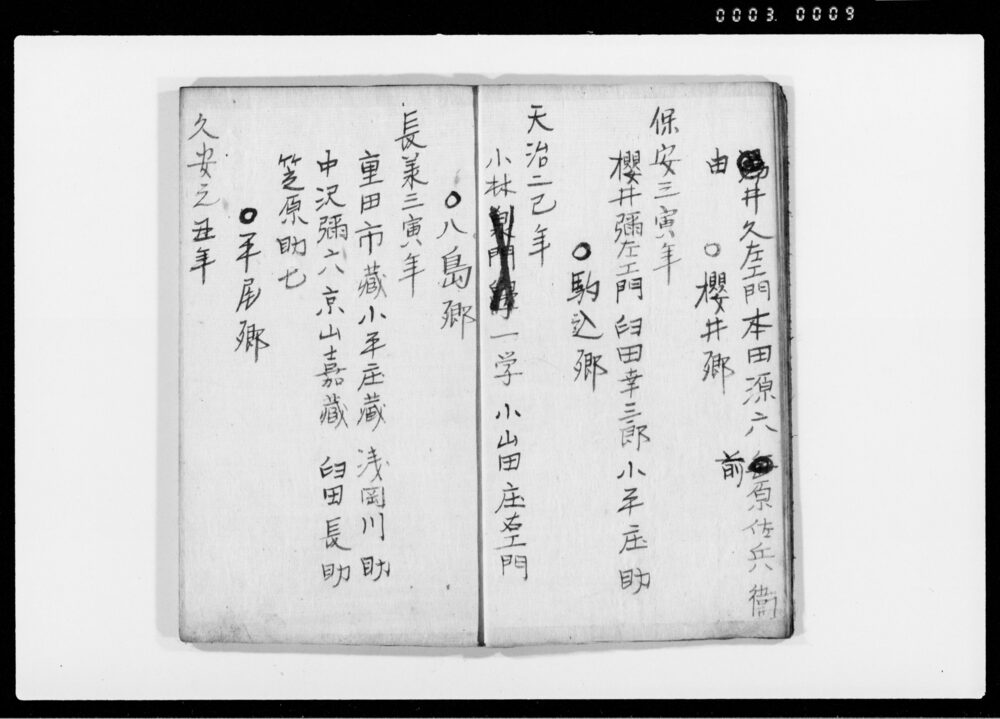 0003 0009
由井久左エ門 本田源六 前原佐兵衛
○櫻井郷
保安三寅年
櫻井彌左エ門 臼田幸三郎 小平庄助
○駒込郷
天治二己年
小林 一学 小山田庄右エ門
○八島郷
長美三寅年
重田市藏 小平庄藏 浅岡川助
中沢彌六 京山嘉藏 臼田長助
笠原助七
○平尾郷
久安元丑年